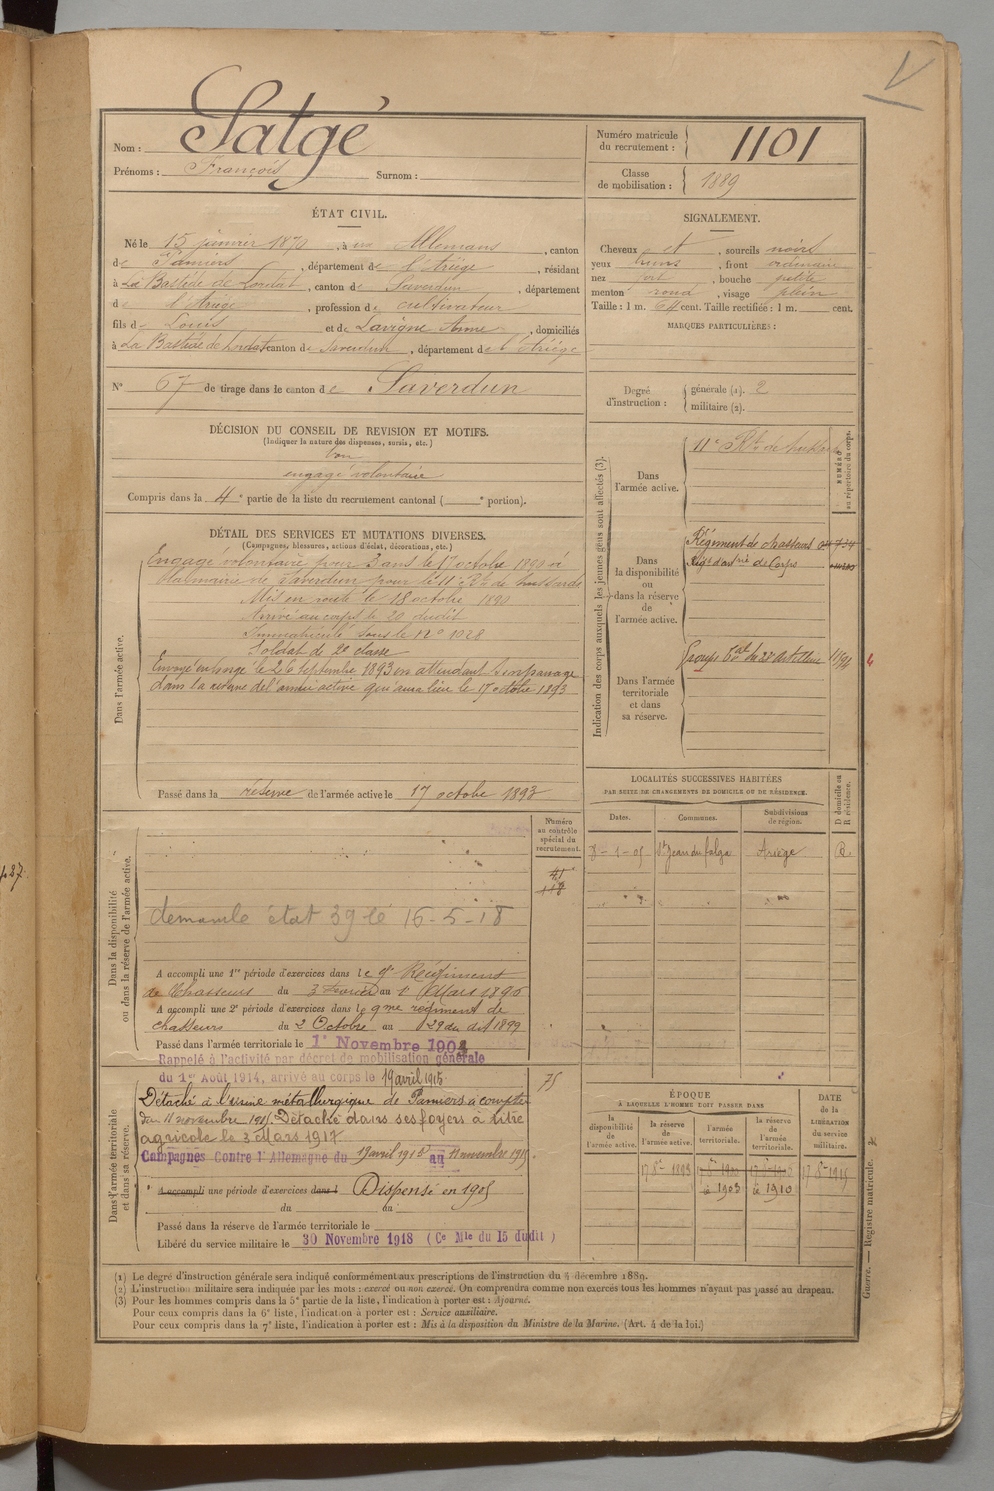 Nom : Satgé
Prénoms : François Surnom :
Numéro matricule du recrutement : 1101
Classe de mobilisation : 1889
ÉTAT CIVIL.
Né le 15 janvier 1870, à Allemans, canton
de Pamiers, département de l'Ariège, résidant
à La Bastide de Lordat, canton de Saverdun, département
de l'Ariège, profession de cultivateur
fils de Louis et de Lavigne Anne, domiciliés
à La Bastide de Lordat canton de Saverdun, département de l'Ariège
N° 67 de tirage dans le canton de Saverdun
SIGNALEMENT.
Cheveux et, sourcils noirs
yeux bruns, front ordinaire
nez fort, bouche petite
menton rond, visage plein
Taille : 1 m. 64 cent. Taille rectifiée : 1 m. cent.
MARQUES PARTICULIÈRES :
Degré d'instruction : générale (1). 2
militaire (2).
DÉCISION DU CONSEIL DE REVISION ET MOTIFS.
(Indiquer la nature des dispenses, sursis, etc.)
bon
engagé volontaire
Compris dans la 4e partie de la liste du recrutement cantonal ( e portion).
DÉTAIL DES SERVICES ET MUTATIONS DIVERSES.
(Campagnes, blessures, actions d'éclat, décorations, etc.)
Dans l'armée active.
Engagé volontaire pour 3 ans le 17 octobre 1890 à
la mairie de Saverdun pour le 11e Rt de hussards
Mis en route le 18 octobre 1890
Arrivé au corps le 20 dudit
Immatriculé sous le N° 1028
Soldat de 2e classe
Envoyé en congé le 26 septembre 1893 en attendant son passage
dans la réserve de l'armée active qui aura lieu le 17 octobre 1893
Passé dans la réserve de l'armée active le 17 octobre 1893
Indication des corps auxquels les jeunes gens sont affectés (3).
NUMÉRO au répertoire du corps.
Dans l'armée active.
11e Rt de hussards
Dans la disponibilité ou dans la réserve de l'armée active.
Régiment de chasseurs
Dans l'armée territoriale et dans sa réserve.
LOCALITÉS SUCCESSIVES HABITÉES
PAR SUITE DE CHANGEMENTS DE DOMICILE OU DE RÉSIDENCE.
Dates. Communes. Subdivisions de région. D domicile ou R résidence.
8-1-05 St Jean du falga Ariège R
Dans la disponibilité ou dans la réserve de l'armée active.
Numéro au contrôle spécial du recrutement.
41
118
demande état 39 le 16-5-18
A accompli une 1re période d'exercices dans le 9e Régiment
de Chasseurs du 3 Février au 1er Mars 1896
A accompli une 2e période d'exercices dans le 9me régiment de
chasseurs du 2 Octobre au 29 du dit 1899
Passé dans l'armée territoriale le 1er Novembre 1904
Rappelé à l'activité par décret de mobilisation générale
du 1er Août 1914, arrivé au corps le 19 avril 1915
75
Dans l'armée territoriale et dans sa réserve.
Détaché à l'usine métallurgique de Pamiers à compter
du 11 novembre 1915. Détaché dans ses foyers à titre
agricole le 3 Mars 1917
Campagnes Contre l'Allemagne du 19 avril 1915 au 11 novembre 1915
A accompli une période d'exercices dans l Dispensé en 1905
du au
Passé dans la réserve de l'armée territoriale le
Libéré du service militaire le 30 Novembre 1918 (Ce Mle du 15 dudit)
ÉPOQUE
À LAQUELLE L'HOMME DOIT PASSER DANS
la disponibilité de l'armée active. la réserve de l'armée active. l'armée territoriale. la réserve de l'armée territoriale. DATE de la LIBÉRATION du service militaire.
17 8re 1893 17 8re 1915
1903 1910
Guerre. — Registre matricule.
(1) Le degré d'instruction générale sera indiqué conformément aux prescriptions de l'instruction du 4 décembre 1889.
(2) L'instruction militaire sera indiquée par les mots : exercé ou non exercé. On comprendra comme non exercés tous les hommes n'ayant pas passé au drapeau.
(3) Pour les hommes compris dans la 5e partie de la liste, l'indication à porter est : Ajourné.
Pour ceux compris dans la 6e liste, l'indication à porter est : Service auxiliaire.
Pour ceux compris dans la 7e liste, l'indication à porter est : Mis à la disposition du Ministre de la Marine. (Art. 4 de la loi.)